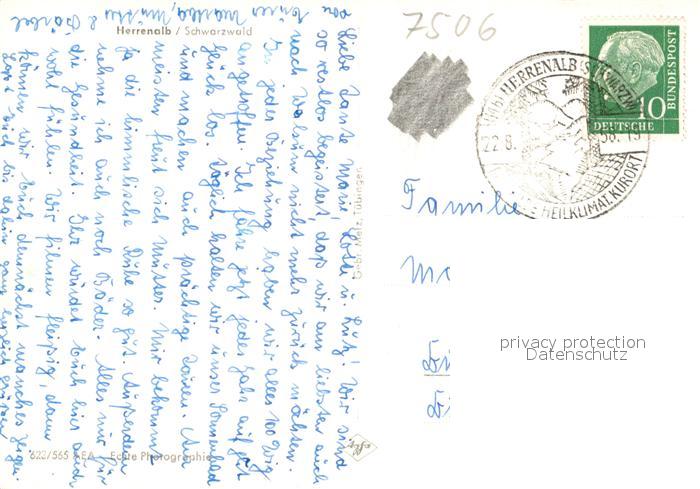 7506
Herrenalb / Schwarzwald
Liebe Tante Marie, Lotte u. Lutz! Wir sind
so restlos begeistert, daß wir am liebsten auch
nach Walsum nicht mehr zurück möchten.
In jeder Beziehung haben wir alles 100%ig
angetroffen. Ich fahre jetzt jedes Jahr auf gut
Glück los. Täglich halten wir unser Sonnenbad
und machen auch prächtige Touren. Am
meisten freut sich Mutter. Mir bekommt
ja die himmlische Ruhe so gut. Außerdem
nehme ich auch noch Bäder. Alles nur für
die Gesundheit. Ihr würdet Euch hier auch
wohl fühlen. Wir filmen fleißig, dann
können wir Euch demnächst manches zeigen.
Seid Euch bis dahin ganz herzlich grüßen
von Mutter &
Gebr. Metz, Tübingen
622/565 AEA Echte Photographie
HERRENALB (SCHWARZW)
22.8.
58.-15
HEILKLIMAT. KURORT
10
DEUTSCHE
BUNDESPOST
Familie
privacy protection
Datenschutz